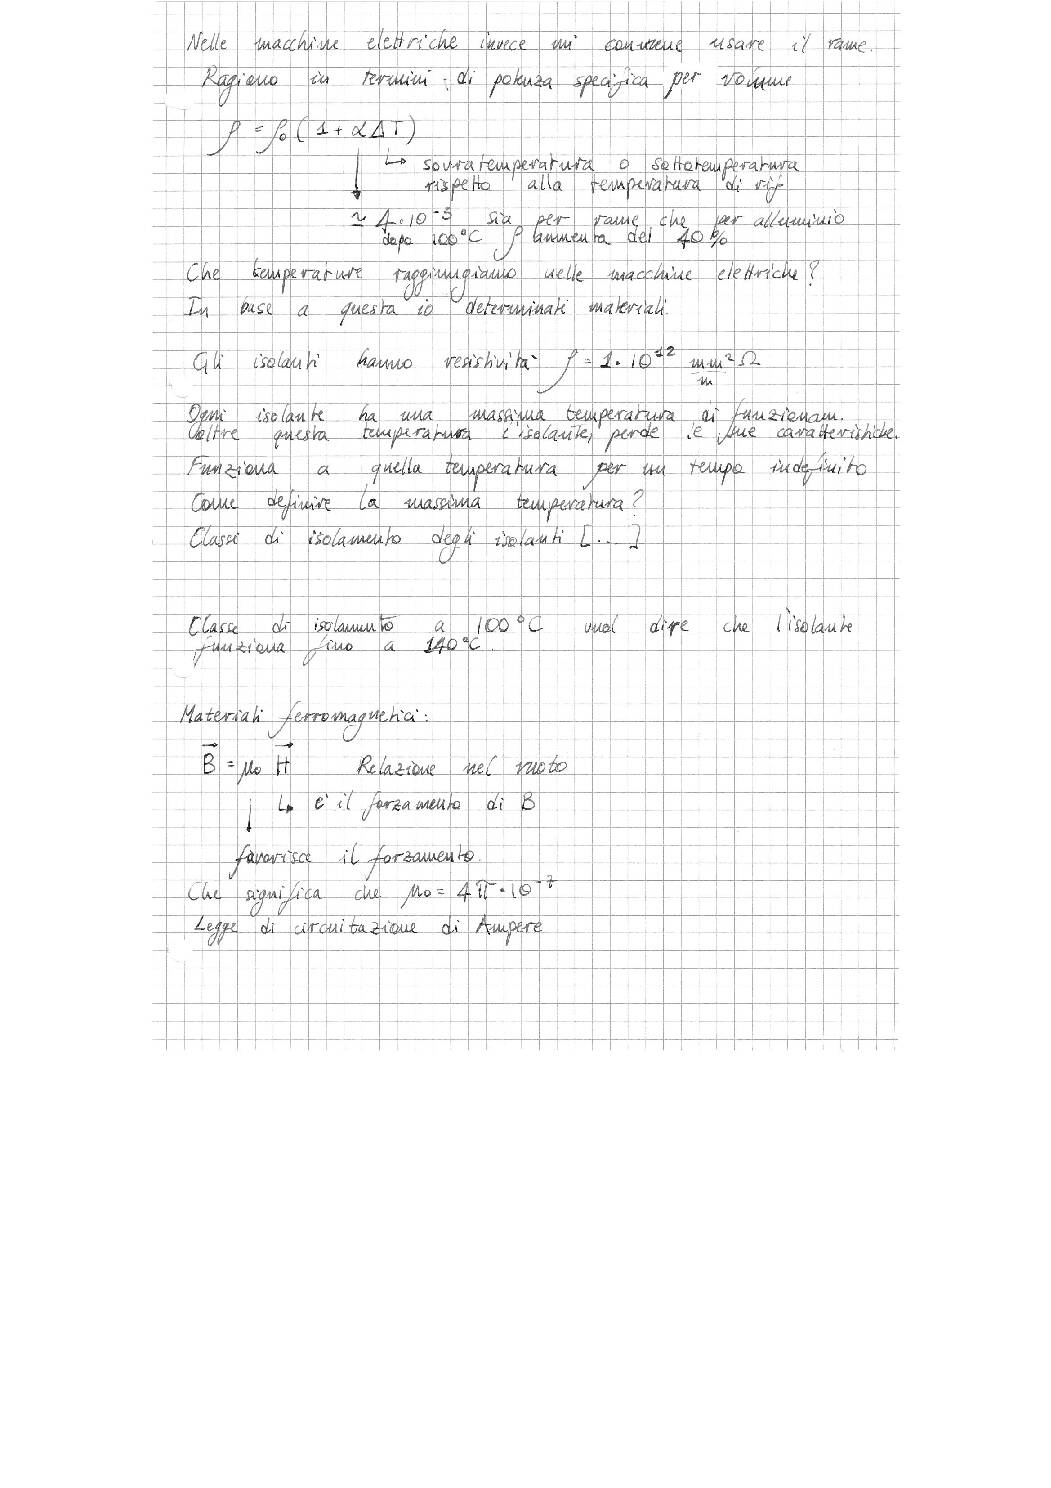 Nelle macchine elettriche invece mi conviene usare il rame.
Ragiono in termini di potenza specifica per volume
ρ = ρ₀ (1 + α Δ T)
↳ sovratemperatura o sottotemperatura
rispetto alla temperatura di rif
≃ 4·10⁻³ sia per rame che per alluminio
dopo 100°C ρ aumenta del 40%
Che temperature raggiungiamo nelle macchine elettriche?
In base a questa io determinati materiali.
Gli isolanti hanno resistività ρ = 1·10¹² mm²Ω/m
Ogni isolante ha una massima temperatura di funzionam.
Oltre questa temperatura l'isolante perde le sue caratteristiche.
Funziona a quella temperatura per un tempo indefinito
Come definire la massima temperatura?
Classi di isolamento degli isolanti [...]
Classe di isolamento a 100°C vuol dire che l'isolante
funziona fino a 140°C.
Materiali ferromagnetici:
B⃗ = μ₀ H⃗ Relazione nel vuoto
↳ è il forzamento di B
favorisce il forzamento.
Che significa che μ₀ = 4π·10⁻⁷
Legge di circuitazione di Ampere